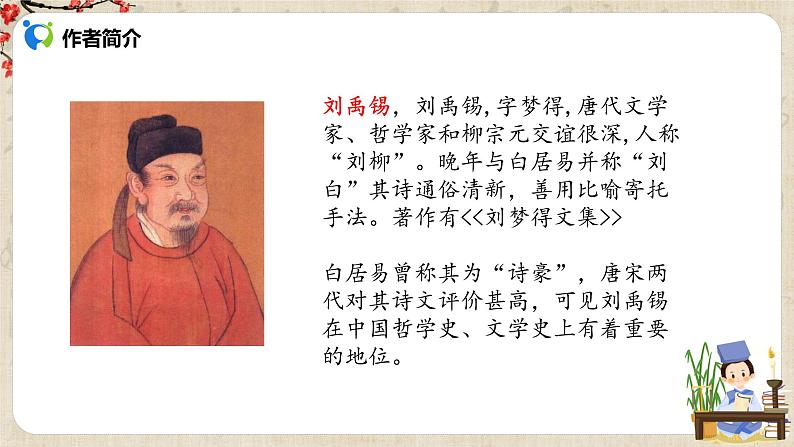 作者简介
刘禹锡，刘禹锡,字梦得,唐代文学
家、哲学家和柳宗元交谊很深,人称
“刘柳”。晚年与白居易并称“刘
白”其诗通俗清新，善用比喻寄托
手法。著作有<<刘梦得文集>>
白居易曾称其为“诗豪”，唐宋两
代对其诗文评价甚高，可见刘禹锡
在中国哲学史、文学史上有着重要
的地位。